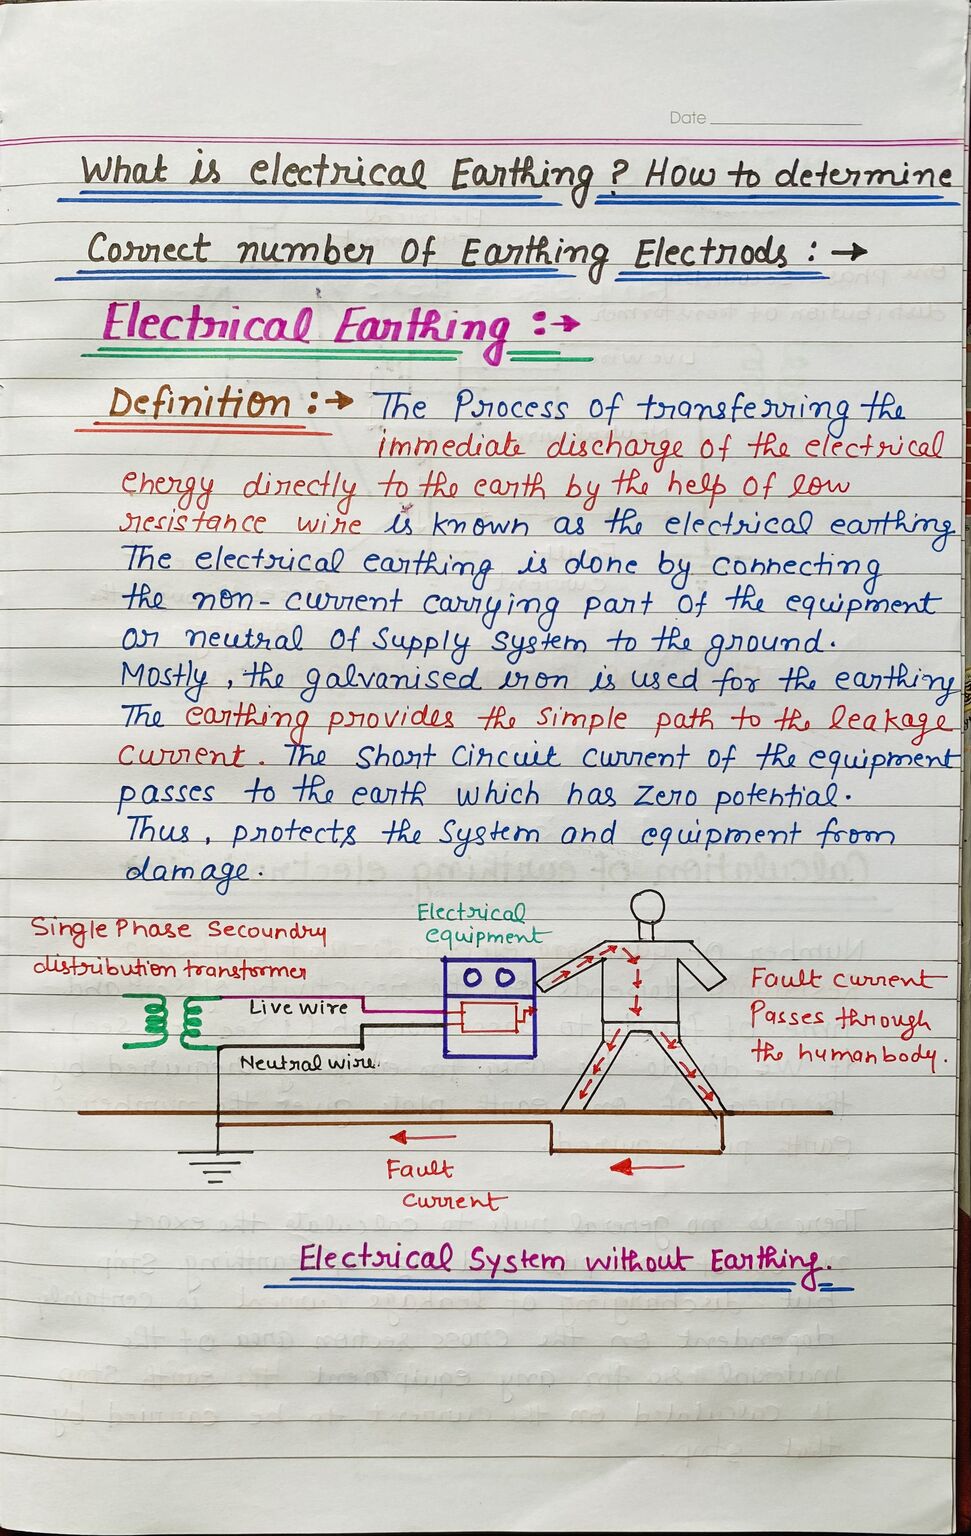 Date
What is electrical Earthing ? How to determine
Correct number of Earthing Electrods : →
Electrical Earthing :→
Definition :→ The Process of transferring the
immediate discharge of the electrical
energy directly to the earth by the help of low
resistance wire is known as the electrical earthing
The electrical earthing is done by connecting
the non-current carrying part of the equipment
or neutral of supply system to the ground.
Mostly, the galvanised iron is used for the earthing
The earthing provides the simple path to the leakage
current. The short circuit current of the equipment
passes to the earth which has zero potential.
Thus, protects the system and equipment from
damage.
Single Phase Secoundry
distribution transformer
Electrical
equipment
Live wire
Neutral wire.
Fault current
Passes through
the human body.
Fault
current
Electrical System without Earthing.